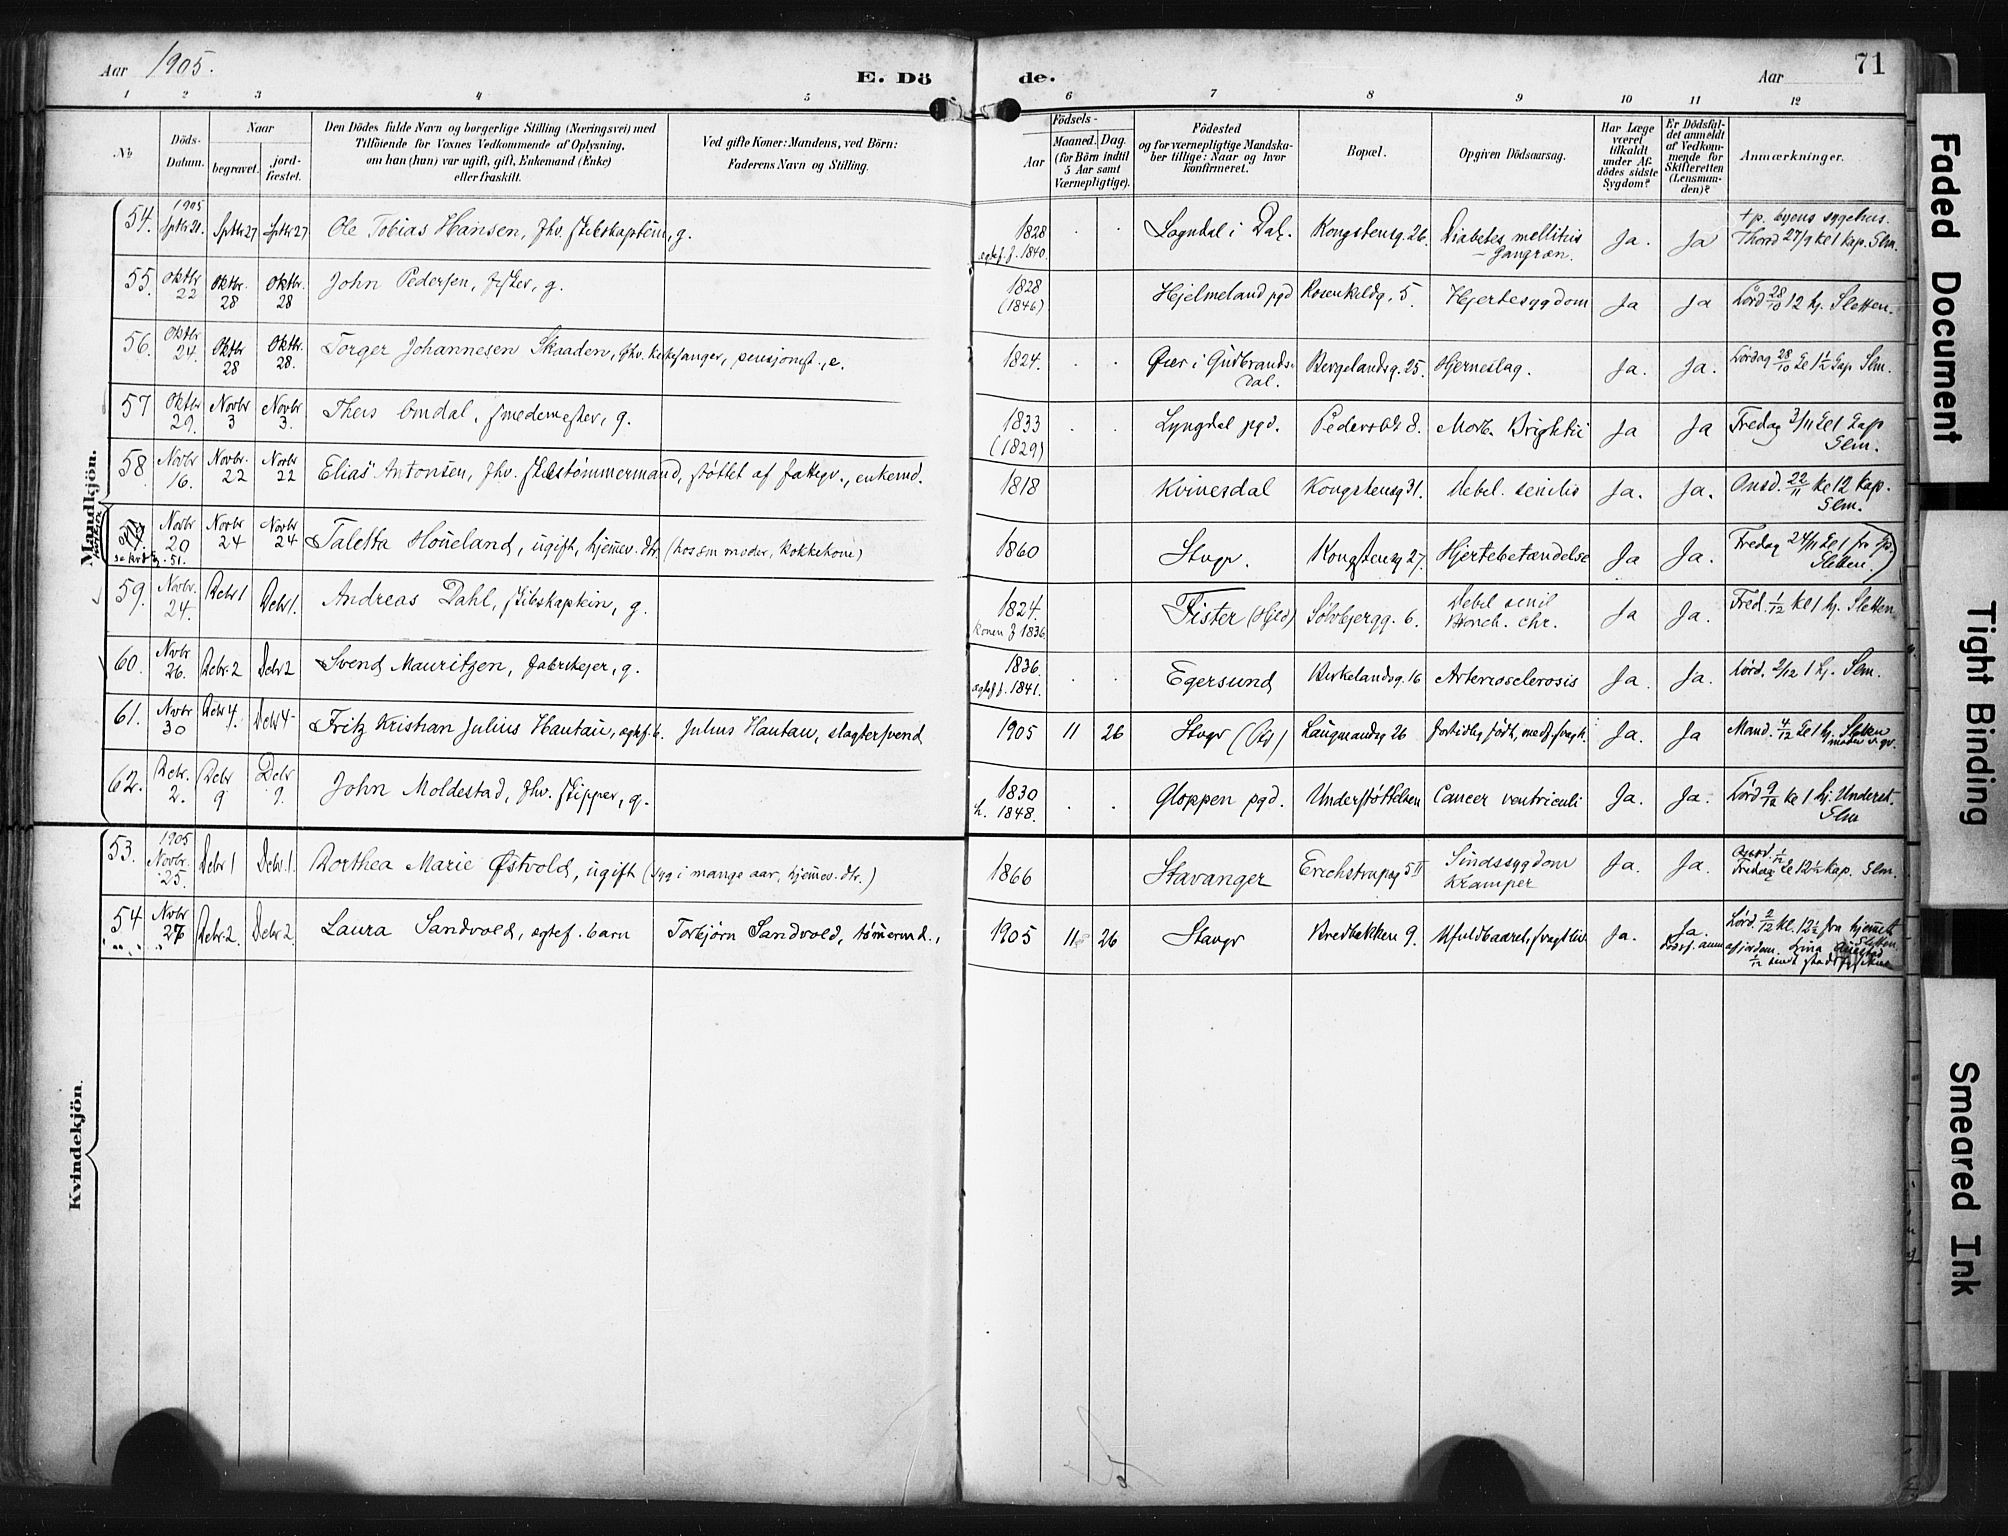 Aar 1905. E. Dö de. Aar 71
1 2 3 4 5 6 7 8 9 10 11 12
No.
Döds-
Datum.
Naar
begravet.
jord-
fæstet.
Den Dödes fulde Navn og borgerlige Stilling (Næringsvei) med
Tilföiende for Voxnes Vedkommende af Oplysning,
om han (hun) var ugift, gift, Enkemand (Enke)
eller fraskilt.
Ved gifte Koner: Mandens, ved Börn:
Faderens Navn og Stilling.
Födsels-
Aar
Maaned. Dag.
(for Börn indtil
5 Aar samt
Værnepligtige).
Födested
og for værnepligtige Mandska-
ber tillige: Naar og hvor
konfirmeret.
Bopæl.
Opgiven Dödsaarsag.
Har Læge
været
tilkaldt
under Af-
dödes sidste
Sygdom?
Er Dödsfal-
det anmeldt
af Vedkom-
mende for
Skifteretten
(Lensman-
den)?
Anmærkninger.
Mandkjön.
54. 1905 Sptbr 21. Sptbr 27 Sptbr 27 Ole Tobias Hansen, fhv. skibskaptein, g. 1828 . . Sogndal i Dal. Kongstensg. 26. Diabetes mellitus Ja. Ja + p. byens sygehus.
egtef. f. 1840. – Gangræn. Thorsd 27/9 kl 1 kap. Slm.
55. Oktbr 22 Oktbr. 28 Oktbr. 28 John Pedersen, fisker, g. 1828 Hjelmeland pgd Rosenkildg. 5. Hjertesygdom Ja Ja Lørd 28/10 12 hj. Sletten.
(1846)
56. Oktbr 24. Oktbr 28 Oktbr. 28. Torger Johannesen Skaaden, fhv. kirkesanger, pensjonist, e. 1824. . . Øier i Gudbrands- Bergelandsg. 25. Hjerneslag. Ja. Ja. Lørdag 28/10 kl 1 1/2 kap Slm.
dal.
57 Oktbr 29. Novbr 3 Novbr 3. Theis Omdal, smedemester, g. 1833 . . Lyngdal pgd. Pedersbk 8. Morb. Brightii Ja Ja Fredag 3/11 kl 1 kap
(1829) Slm.
58. Novbr 16. Novbr. 22 Novbr 22 Elias Antonsen, fhv. skibstømmermand, støttet af fattigv., enkemd. 1818 Kvinesdal Kongstensg 31. Debil. senilis Ja. Ja. Onsd. 22/11 kl 12 kap.
Slm.
Novbr 20 Novbr 24 Novbr 24 Taletta Høueland, ugift, hjemmev. dtr. (hos sin moder, kokkekone) 1860 Stvgr. Kongstensg 27. Hjertebetændelse Ja Ja. Fredag 24/11 kl 1
Sletten.)
59. Novbr. 24. Debr 1 Debr 1. Andreas Dahl, skibskaptein, g. 1824. Fister (Hjld) Sølvbjergg. 6. Debil senil Ja Ja. Fred. 1/12 kl 1 hj. Sletten
konen f 1836. Bronch. chr.
60. Novbr 26. Debr. 2 Debr 2 Svend Mauritzen, fabrikejer, g. 1836. . . Egersund Birkelandsg. 16 Arteriosclerosis Ja. Ja. Lørd. 2/12 1 hj. Slm.
ægtef f. 1841.
61. Novbr 30 Debr 4. Debr 4 Fritz Kristian Julius Hautau, ægtef. b. Julius Hautau, slagtersvend 1905 11 26 Stvgr Laugmandsg 26 fortidlig født, medf. svagh. Ja. Ja Mand. 4/12 kl 1 hj. Sletten
62. Debr. 2. Debr 9 Debr 9. John Moldestad, fhv. skipper, g. 1830 . . Gloppen pgd. Understøttelsen Cancer ventriculi Ja. Ja. Lørd 9/12 kl 1 hj. Underst.
h. 1848. Slm
Kvindekjön.
53. 1905 Novbr. 25. Debr 1 Debr. 1. Dorthea Marie Østvold, ugift (syg i mange aar, hjemmev. dtr.) 1866 Stavanger Erichstrupsg 5 II Sindssygdom Ja. Ja. Fredag kl 12 1/2 kap. Slm.
Kramper
54 Novbr 27 Debr. 2. Debr 2. Laura Sandvold, ægtef. barn Torbjørn Sandvold, tømmermd., 1905 11 26 Stavgr Bredbakken 9. Ufuldbaaret, svagt liv Ja. Ja. Lørd. 2/12 kl. 12 1/2 fra hjemmet
Faded Document
Tight Binding
Smeared Ink